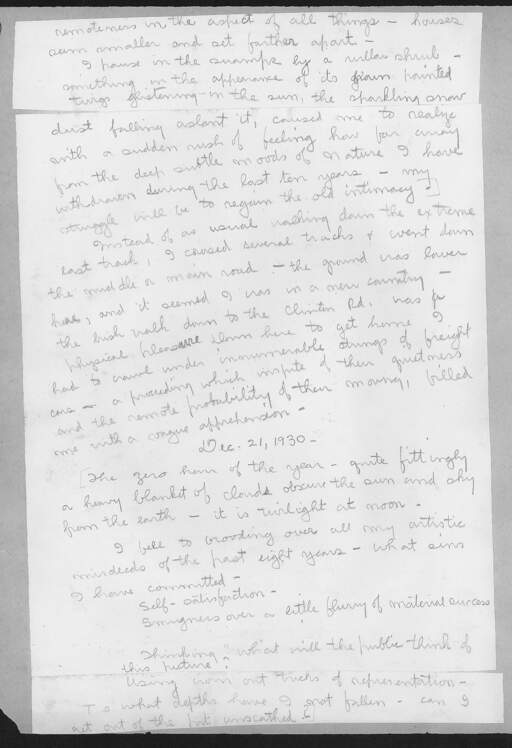 remoteness in the aspect of all things – houses
seem smaller and set farther apart –
I pause in the swamps by a willow shrub –
something in the appearance of its painted
twigs glistening in the sun, the sparkling snow
dust falling aslant it, caused me to realize
with a sudden rush of feeling how far away
from the deep subtle moods of nature I have
withdrawn during the last ten years – my
struggle will be to regain the old intimacy –]
Instead of as usual rushing down the extreme
east track, I crossed several tracks & went down
the middle or main road – the ground was lower
here, and it seemed I was in a new country –
the brisk walk down to the Clinton Rd. was
physical pleasure. Down here to get home I
had to crawl under innumerable strings of freight
cars – a proceeding which inspite of their quietness
and the remote probability of their moving, filled
me with a vague apprehension –
Dec. 21, 1930 –
[The zero hour of the year – quite fittingly
a heavy blanket of clouds obscure the sun and sky
from the earth – it is twilight at noon –
I fell to brooding over all my artistic
misdeeds of the past eight years – what sins
I have committed –
Self-satisfaction –
Smugness over a little flurry of material success
Thinking "what will the public think of
this picture"
Using worn out tricks of representation –
To what depths have I not fallen – can I
get out of the pit unscathed?]